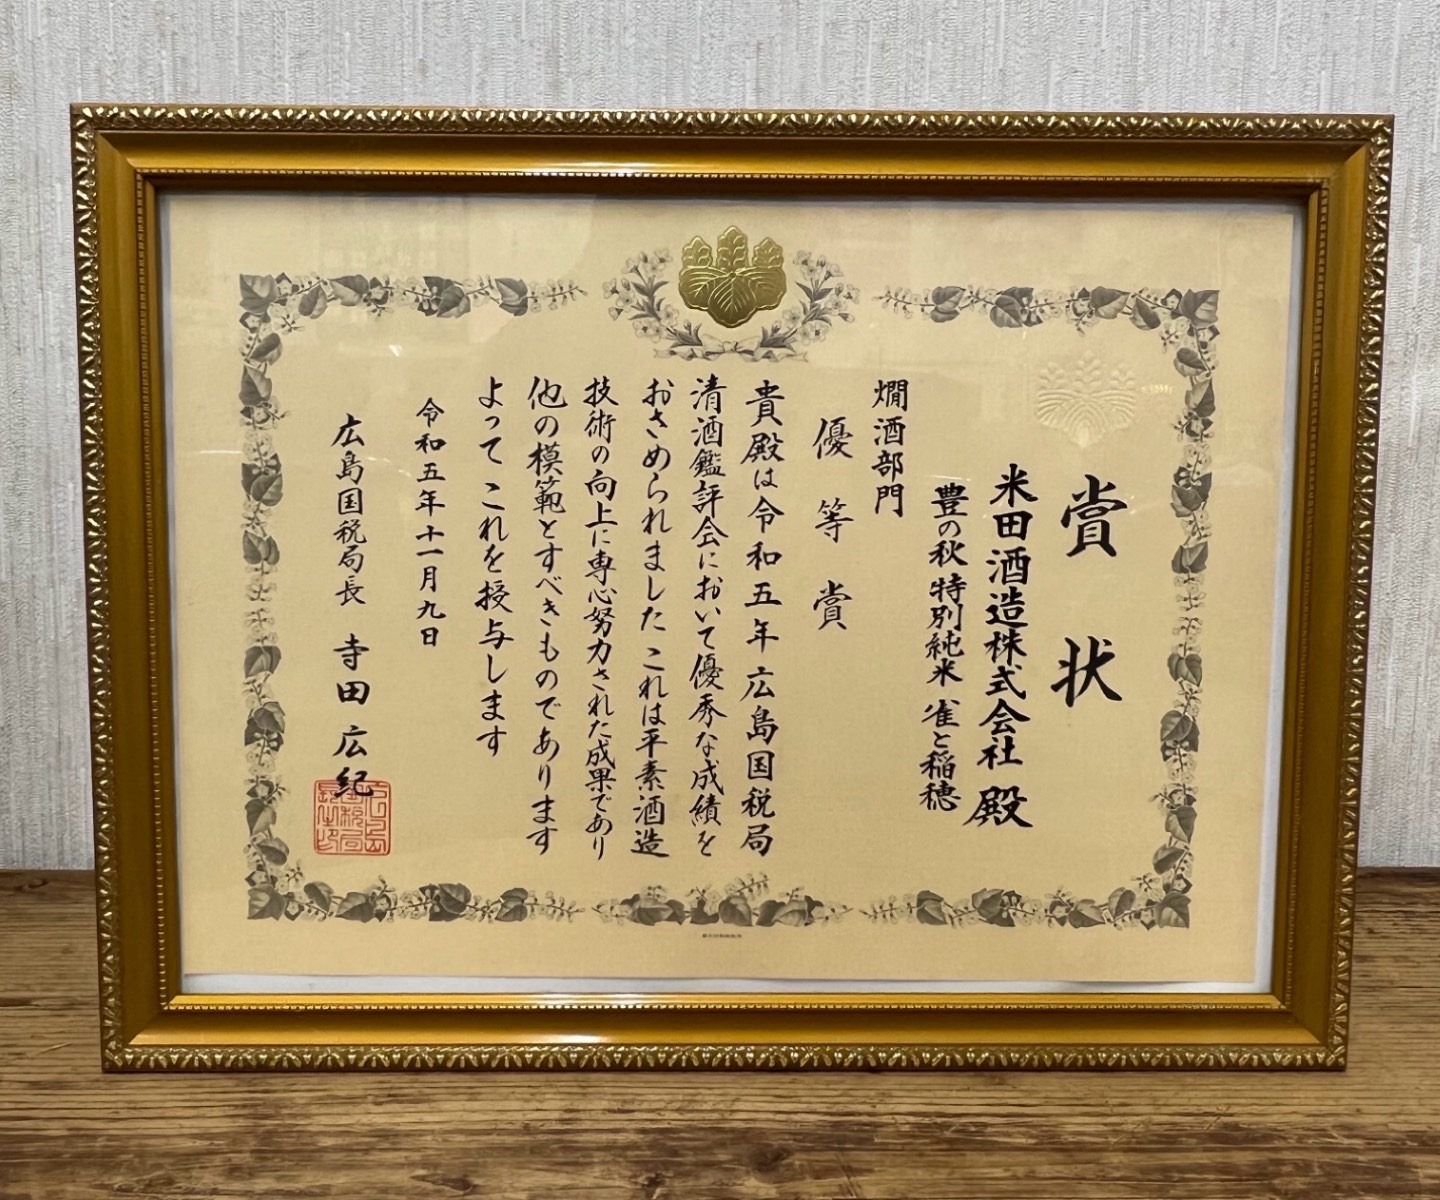 賞状
米田酒造株式会社 殿
豊の秋 特別純米 雀と稲穂
燗酒部門
優等賞
貴殿は令和五年広島国税局
清酒鑑評会において優秀な成績を
おさめられましたこれは平素酒造
技術の向上に専心努力された成果であり
他の模範とすべきものであります
よってこれを授与します
令和五年十一月九日
広島国税局長 寺田広紀